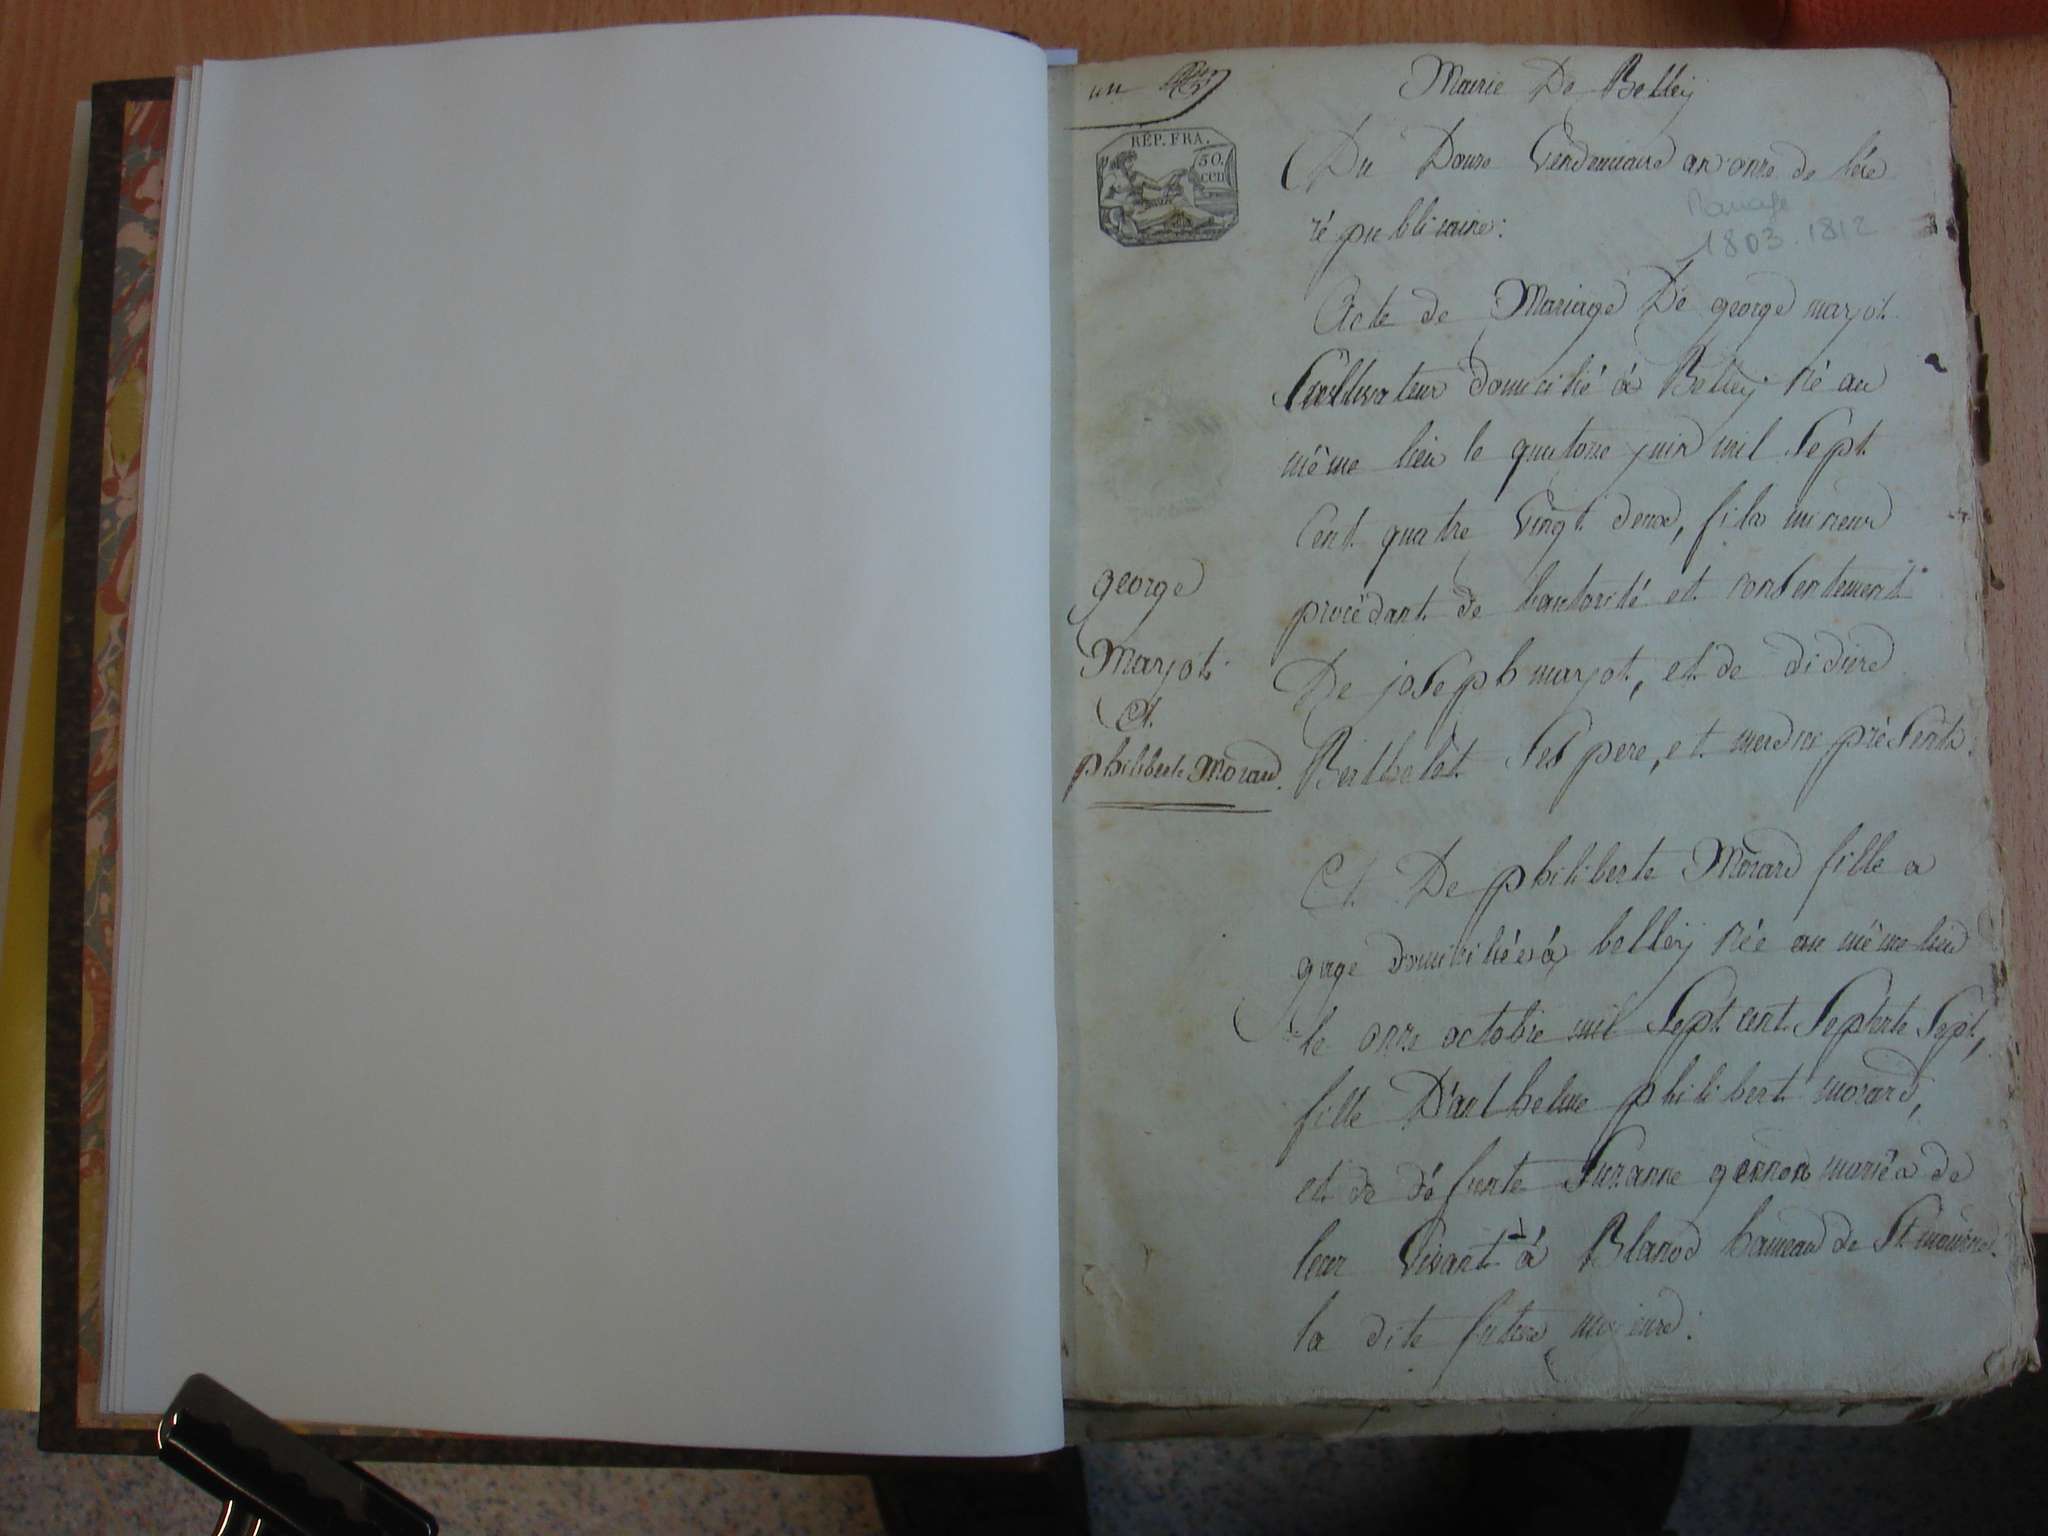 un
Mairie De Belley
RÉP. FRA.
50.
cen
Du Douze Vendemiaire an onze de l'ére
républicaine:
Mariage
1803.1812
Acte de Mariage De george marjot
Cultivateur domicilié à Belley né au
même lieu le quatorze juin mil Sept
Cent quatre Vingt deux, fils mineur
procédant de l'autorité et consentement
De joseph marjot, et de didiere
Berthelet Ses pere, et mere présents:
george
Marjot
Et
philiberte Morard.
Et De philiberte Morard fille a
gage domiciliée à belley née au même lieu
le onze octobre mil Sept cent Septente Sept,
fille D'anthelme philibert morard,
et de défunte Suzanne gernon mariés de
leur Vivant à Blanod hameau de St
la dite future majeure: